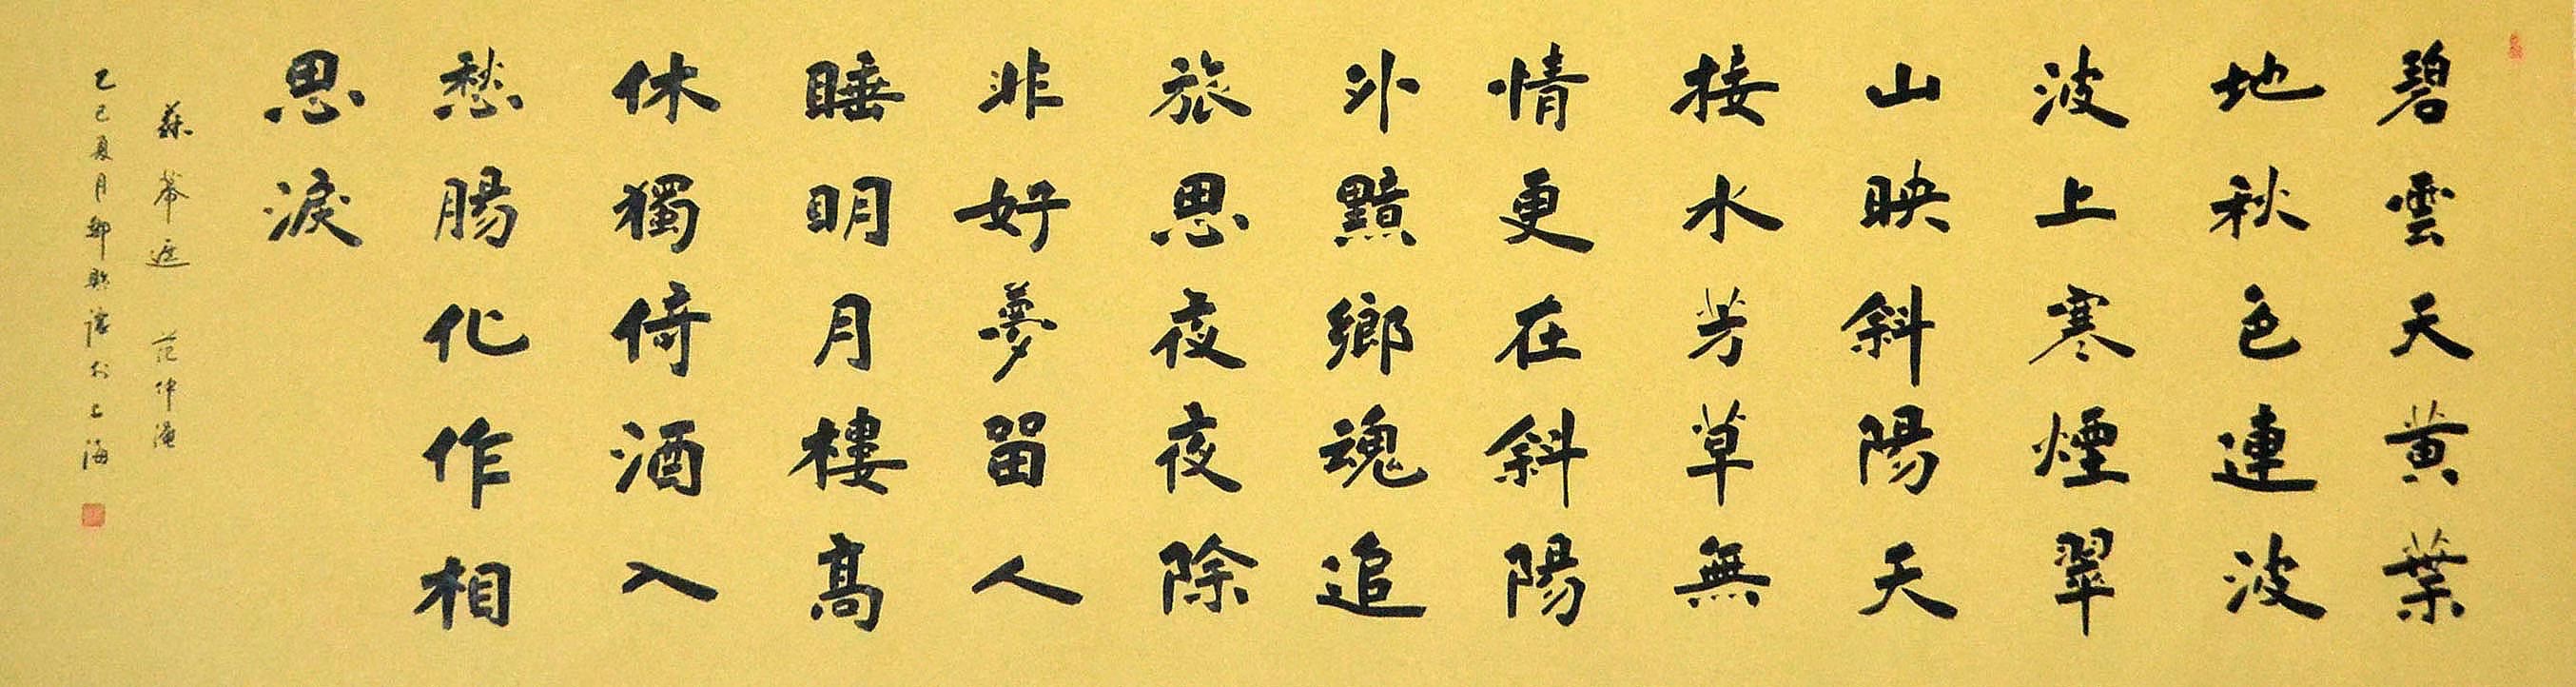 碧雲天黄葉
地秋色連波
波上寒煙翠
山映斜陽天
接水芳草無
情更在斜陽
外黯鄉魂追
旅思夜夜除
非好夢留人
睡明月樓高
休獨倚酒入
愁腸化作相
思淚
蘇幕遮 范仲淹
乙巳夏月鄭 於上海